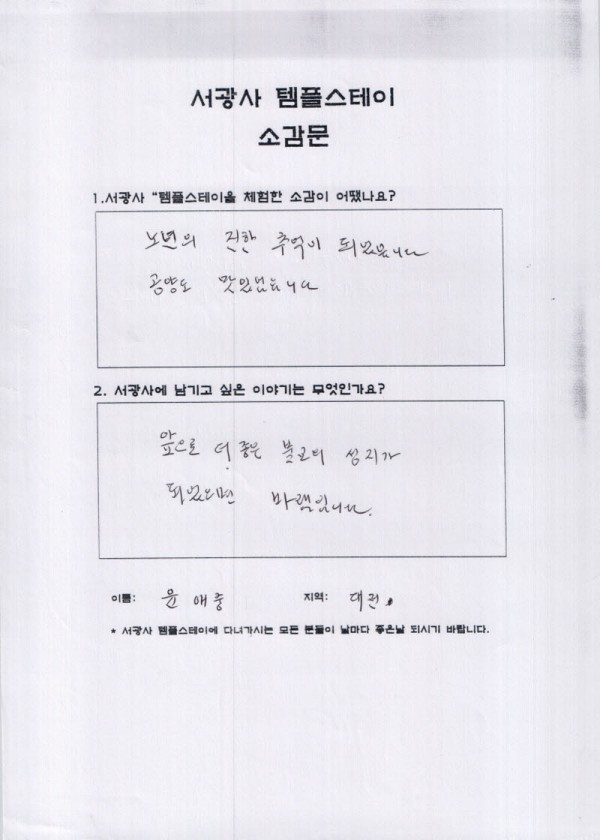 서광사 템플스테이
소감문
1.서광사 "템플스테이을 체험한 소감이 어땠나요?
노년의 진한 추억이 되었읍니다
공양도 맛있었읍니다
2. 서광사에 남기고 싶은 이야기는 무엇인가요?
앞으로 더 좋은 불교의 성지가
되었으면 바램입니다.
이름: 윤애중 지역:
* 서광사 템플스테이에 다녀가시는 모든 분들이 날마다 좋은날 되시기 바랍니다.